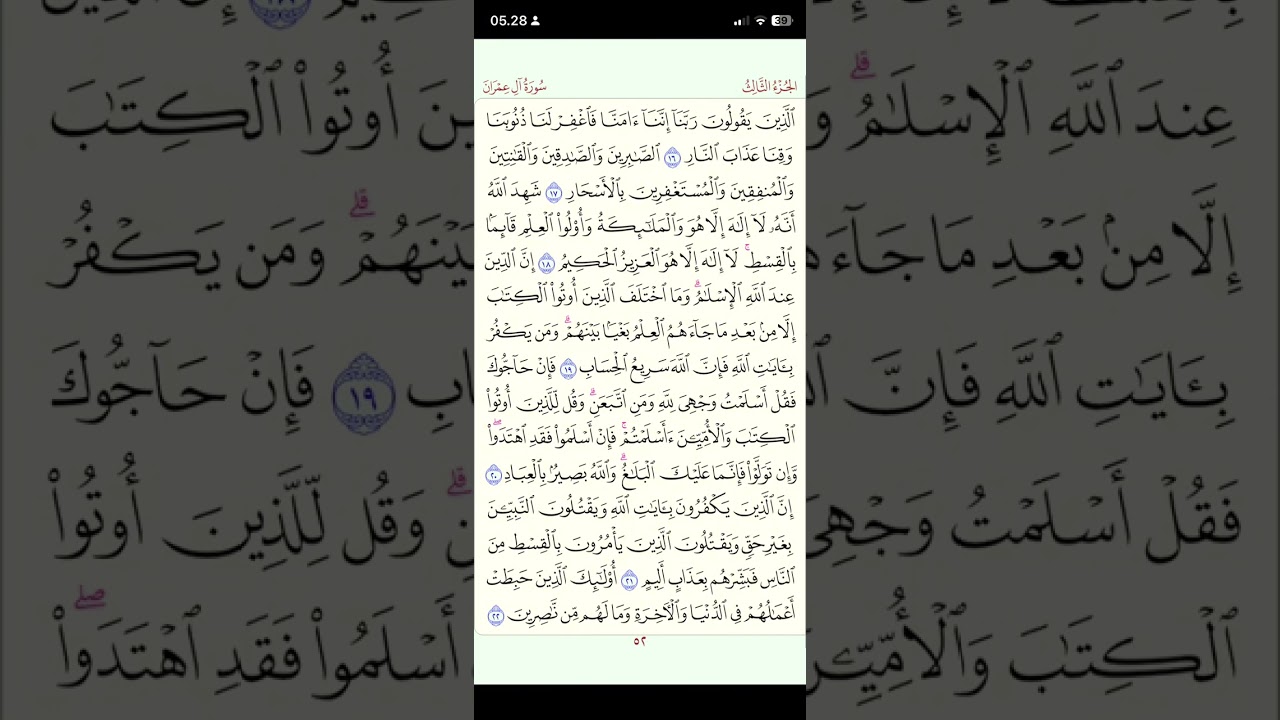 05.28
39
الجُزْءُ الثَّالِثُ
سُورَةُ آلِ عِمْرَانَ
ٱلَّذِينَ يَقُولُونَ رَبَّنَآ إِنَّنَآ ءَامَنَّا فَٱغْفِرْ لَنَا ذُنُوبَنَا
وَقِنَا عَذَابَ ٱلنَّارِ ١٦ ٱلصَّٰبِرِينَ وَٱلصَّٰدِقِينَ وَٱلْقَٰنِتِينَ
وَٱلْمُنفِقِينَ وَٱلْمُسْتَغْفِرِينَ بِٱلْأَسْحَارِ ١٧ شَهِدَ ٱللَّهُ
أَنَّهُۥ لَآ إِلَٰهَ إِلَّا هُوَ وَٱلْمَلَٰٓئِكَةُ وَأُو۟لُوا۟ ٱلْعِلْمِ قَآئِمًۢا
بِٱلْقِسْطِۚ لَآ إِلَٰهَ إِلَّا هُوَ ٱلْعَزِيزُ ٱلْحَكِيمُ ١٨ إِنَّ ٱلدِّينَ
عِندَ ٱللَّهِ ٱلْإِسْلَٰمُۗ وَمَا ٱخْتَلَفَ ٱلَّذِينَ أُوتُوا۟ ٱلْكِتَٰبَ
إِلَّا مِنۢ بَعْدِ مَا جَآءَهُمُ ٱلْعِلْمُ بَغْيًۢا بَيْنَهُمْۗ وَمَن يَكْفُرْ
بِـَٔايَٰتِ ٱللَّهِ فَإِنَّ ٱللَّهَ سَرِيعُ ٱلْحِسَابِ ١٩ فَإِنْ حَآجُّوكَ
فَقُلْ أَسْلَمْتُ وَجْهِىَ لِلَّهِ وَمَنِ ٱتَّبَعَنِۗ وَقُل لِّلَّذِينَ أُوتُوا۟
ٱلْكِتَٰبَ وَٱلْأُمِّيِّـۧنَ ءَأَسْلَمْتُمْۚ فَإِنْ أَسْلَمُوا۟ فَقَدِ ٱهْتَدَوا۟ۖ
وَّإِن تَوَلَّوْا۟ فَإِنَّمَا عَلَيْكَ ٱلْبَلَٰغُۗ وَٱللَّهُ بَصِيرٌۢ بِٱلْعِبَادِ ٢٠
إِنَّ ٱلَّذِينَ يَكْفُرُونَ بِـَٔايَٰتِ ٱللَّهِ وَيَقْتُلُونَ ٱلنَّبِيِّـۧنَ
بِغَيْرِ حَقٍّ وَيَقْتُلُونَ ٱلَّذِينَ يَأْمُرُونَ بِٱلْقِسْطِ مِنَ
ٱلنَّاسِ فَبَشِّرْهُم بِعَذَابٍ أَلِيمٍ ٢١ أُو۟لَٰٓئِكَ ٱلَّذِينَ حَبِطَتْ
أَعْمَٰلُهُمْ فِى ٱلدُّنْيَا وَٱلْـَٔاخِرَةِ وَمَا لَهُم مِّن نَّٰصِرِينَ ٢٢
٥٢